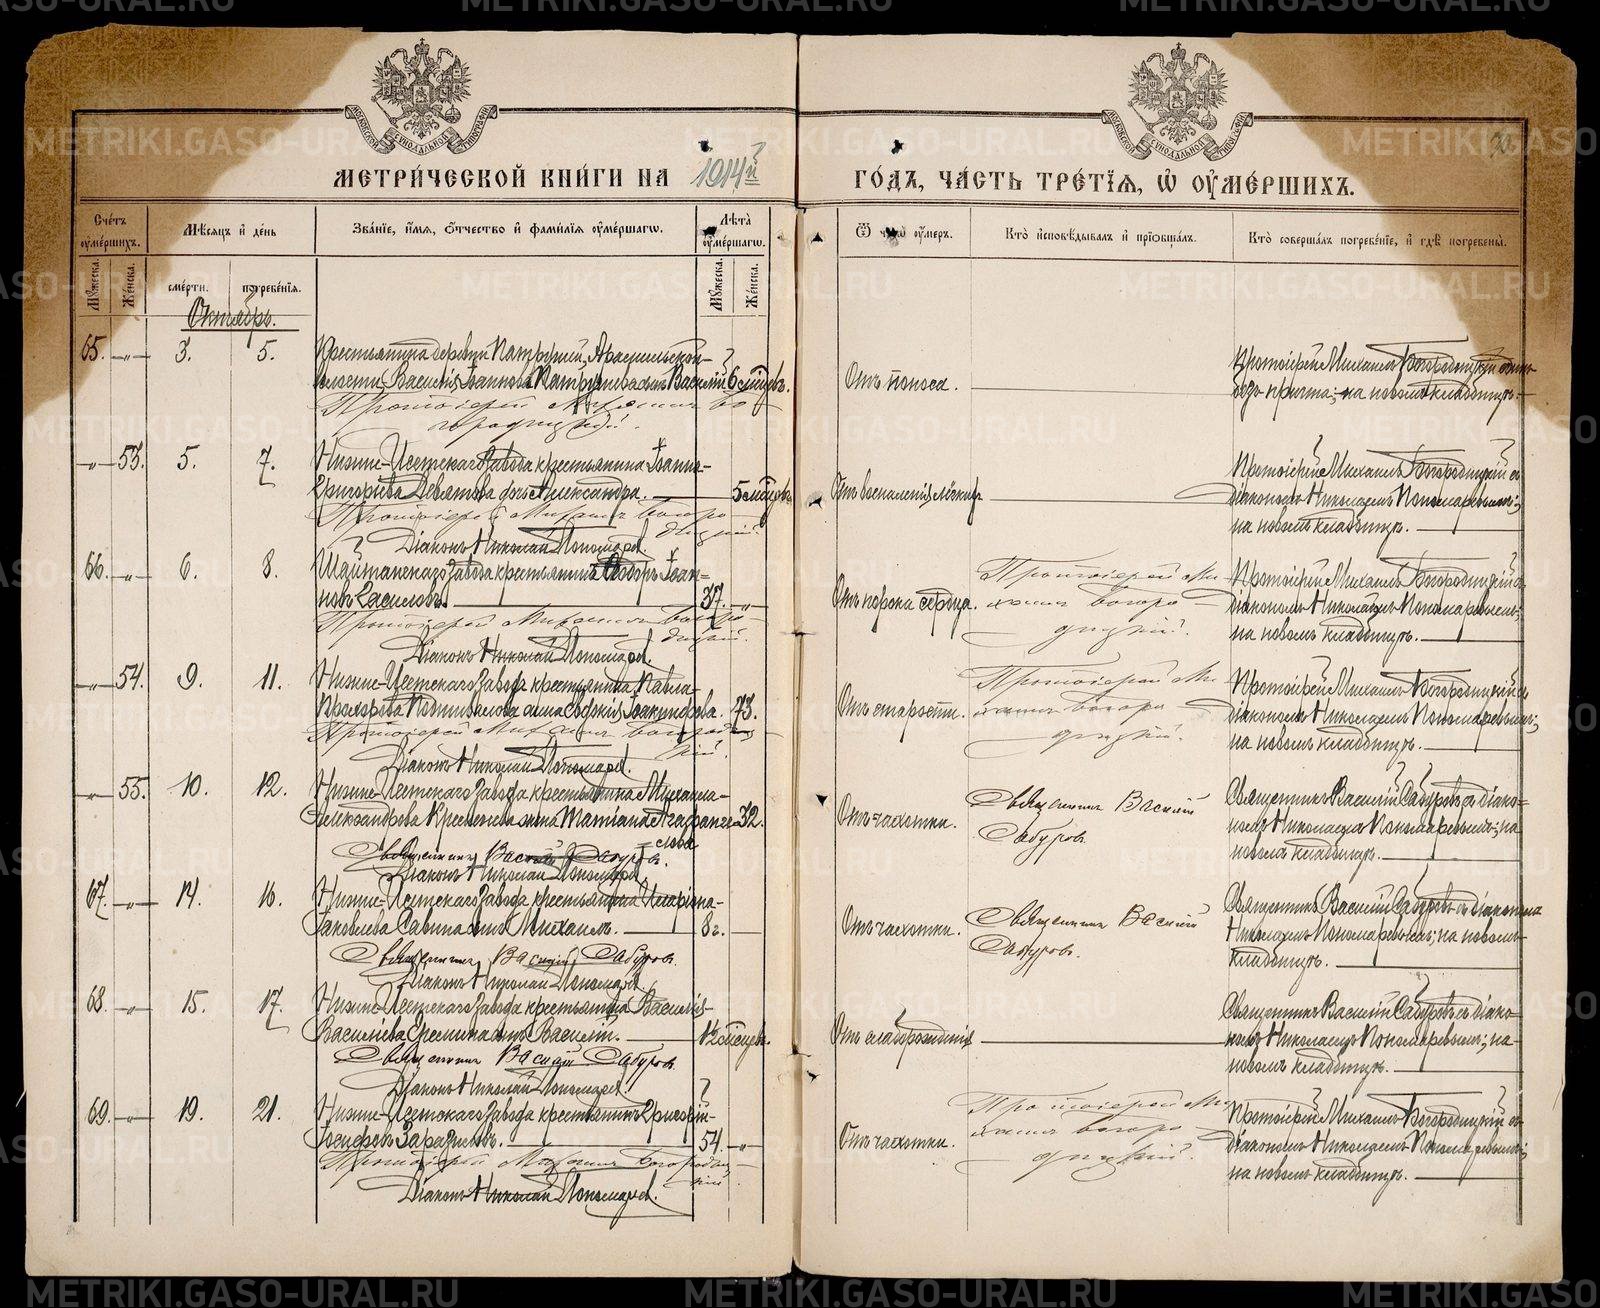 МЕТРИ́ЧЕСКОЙ КНИ́ГИ НА 1914й ГО́ДЪ, ЧА́СТЬ ТРЕ́ТІЯ, Ѡ ОУМЕ́РШИХЪ.
Сче́тъ оуме́ршихъ.
Мꙋжеска.
Же́нска.
Мѣсяцъ и де́нь
сме́рти.
погребе́нїя.
Зва́нїе, и́мя, о́тчество и фами́лїя оуме́ршагѡ.
Лѣта̀ оуме́ршагѡ.
Мꙋжеска.
Же́нска.
Ѿ чегѡ̀ оу́меръ.
Кто̀ исповѣ́дывалъ и прїобща́лъ.
Кто̀ соверша́лъ погребе́нїе, и гдѣ̀ погребены̀.
Октябрь.
65. —„— 3. 5.
Крестьянина деревни Патрушей, Арамильской
волости, Василія Іоаннова Патрушева сынъ Василій 6 мѣсяцъ.
Протоіерей Михаилъ Бо-
городицкій.
Отъ поноса.
Протоіерей Михаилъ Богородицкій
на новомъ кладбищѣ.
—„— 53. 5. 7.
Нижне-Исетскаго завода крестьянина Іоанна
Григорьева Девятова дочь Александра. 5 мѣсяцъ
Протоіерей Михаилъ Богоро-
дицкій.
Діаконъ Николай Пономаревъ.
Отъ воспаленія лёгкихъ
Протоіерей Михаилъ Богородицкій съ
діакономъ Николаемъ Пономаревымъ;
на новомъ кладбищѣ.
66. —„— 6. 8.
Шайтанскаго завода крестьянинъ Ѳеодоръ Іоан-
новъ 37. „
Протоіерей Михаилъ Богоро-
дицкій.
Діаконъ Николай Пономаревъ.
Отъ порока сердца.
Протоіерей Ми-
хаилъ Богоро-
дицкій.
Протоіерей Михаилъ Богородицкій съ
діакономъ Николаемъ Пономаревымъ;
на новомъ кладбищѣ.
—„— 54. 9. 11.
Нижне-Исетскаго завода крестьянина Павла
Прохорова жена Софія 73.
Протоіерей Михаилъ Богородиц-
кій.
Діаконъ Николай Пономаревъ.
Отъ старости.
Протоіерей Ми-
хаилъ Богоро-
дицкій.
Протоіерей Михаилъ Богородицкій съ
діакономъ Николаемъ Пономаревымъ;
на новомъ кладбищѣ.
—„— 55. 10. 12.
Нижне-Исетскаго завода крестьянина Михаила
Александрова жена Агафанге- 32.
лова
Священникъ Василій Сабуровъ.
Діаконъ Николай Пономаревъ.
Отъ чахотки.
Священникъ Василій
Сабуровъ.
Священникъ Василій Сабуровъ съ діако-
номъ Николаемъ Пономаревымъ; на
новомъ кладбищѣ.
67. —„— 14. 16.
Нижне-Исетскаго завода крестьянина Иларіона
Іаковлева Савина сынъ Михаилъ. 8 г.
Священникъ Василій Сабуровъ.
Діаконъ Николай Пономаревъ.
Отъ чахотки.
Священникъ Василій
Сабуровъ.
Священникъ Василій Сабуровъ съ діакономъ
Николаемъ Пономаревымъ; на новомъ
кладбищѣ.
68. —„— 15. 17.
Нижне-Исетскаго завода крестьянина Василія
Васильева сынъ Василій. мѣсяцъ.
Священникъ Василій Сабуровъ.
Діаконъ Николай Пономаревъ.
Отъ слаборожденія
Священникъ Василій Сабуровъ съ діако-
номъ Николаемъ Пономаревымъ; на
новомъ кладбищѣ.
69. —„— 19. 21.
Нижне-Исетскаго завода крестьянинъ Григорій
Іосифовъ 54. „
Протоіерей Михаилъ Богородиц-
кій.
Діаконъ Николай Пономаревъ.
Отъ чахотки.
Протоіерей Ми-
хаилъ Богоро-
дицкій.
Протоіерей Михаилъ Богородицкій съ
діакономъ Николаемъ Пономаревымъ;
на новомъ кладбищѣ.
METRIKI.GASO-URAL.RU